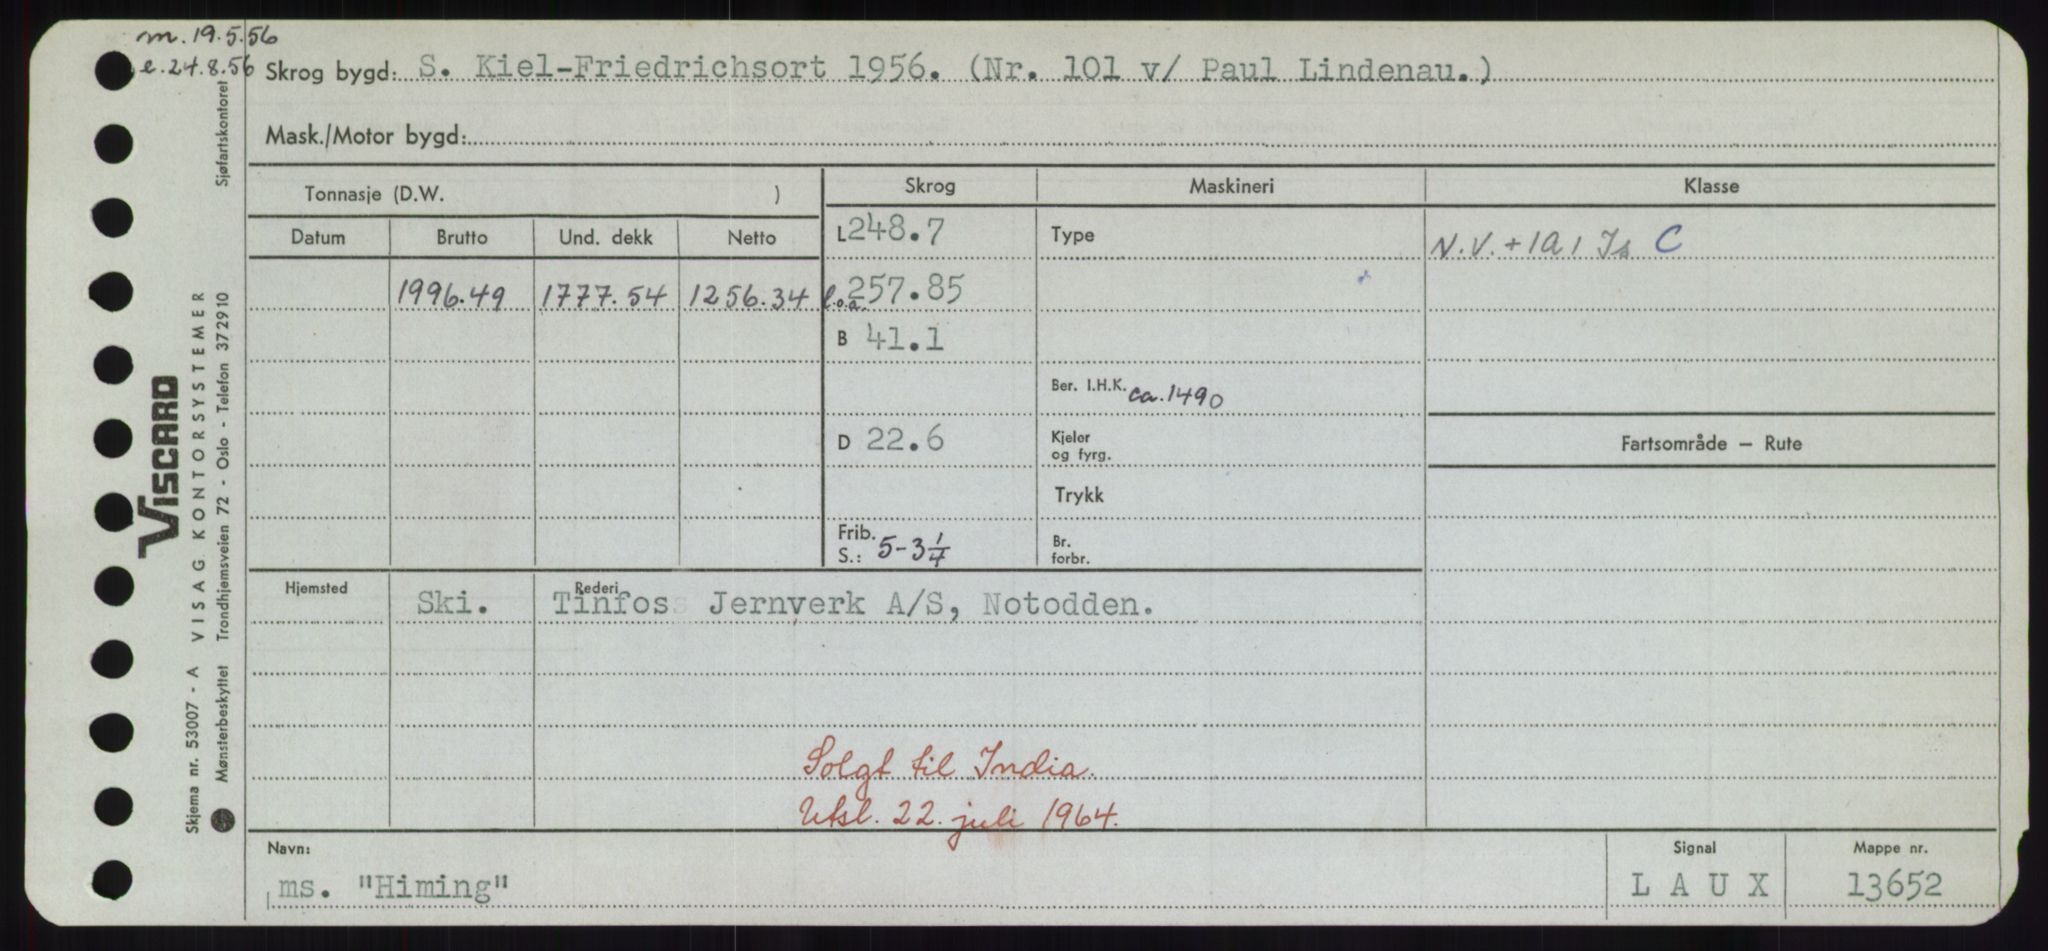 m. 19.5.56
e. 24.8.56 Skrog bygd: S. Kiel-Friedrichsort 1956. (Nr. 101 v/ Paul Lindenau.)
Mask./Motor bygd:
Tonnasje (D.W. ) Skrog Maskineri Klasse
Datum Brutto Und. dekk Netto L 248.7 Type N.V. + 1A1 Is C
1996.49 1777.54 1256.34 l.o.a. 257.85
B 41.1
Ber. I.H.K. ca. 1490
D 22.6 Kjeler og fyrg. Fartsområde – Rute
Trykk
Frib. S.: 5-3 1/4 Br. forbr.
Hjemsted Ski. Rederi Tinfoss Jernverk A/S, Notodden.
Solgt til India.
Utsl. 22. juli 1964.
Navn: Signal Mappe nr.
ms. "Himing" L A U X 13652
Skjema nr. 53007 - A VISAG KONTORSYSTEMER
VISCARD
Mønsterbeskyttet Trondhjemsveien 72 - Oslo - Telefon 372910 Sjøfartskontoret